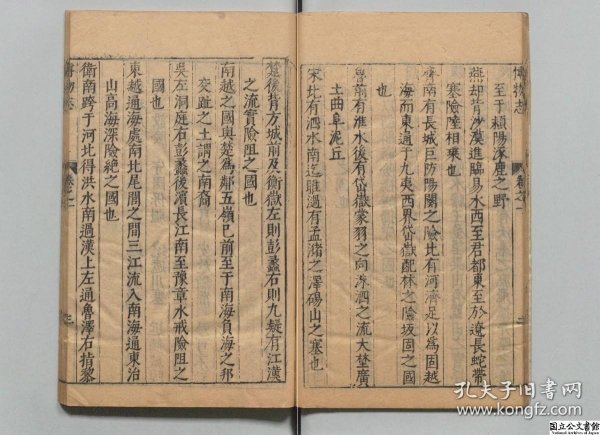 博物志 卷之一 二
至于潁陽涿鹿之野
燕却背沙漠進臨易水西至君都東至於遼長蛇帶
塞險陸相乘也
齊南有長城巨防陽關之險北有河濟足以為固越
海而東通于九夷西界岱嶽配林之險坂固之國
也
魯前有淮水後有岱嶽蒙羽之向洙泗之流大埜廣
土曲阜泥丘
宋北有泗水南迄睢濄有孟瀦之澤碭山之塞也
楚後背方城前及衡嶽左則彭蠡右則九疑有江漢
之流實險阻之國也
南越之國與楚為鄰五嶺已前至于南海負海之邦
交趾之土謂之南裔
吳左洞庭右彭蠡後濱長江南至豫章水戒險阻之
國也
東越通海處南北尾閭之間三江流入南海通東治
山高海深險絕之國也
衛南跨于河北得洪水南過漢上左通魯澤右指黎
博物志 卷之一 三
孔夫子旧书网
www.kongfz.com
国立公文書館
National Archives of Japan